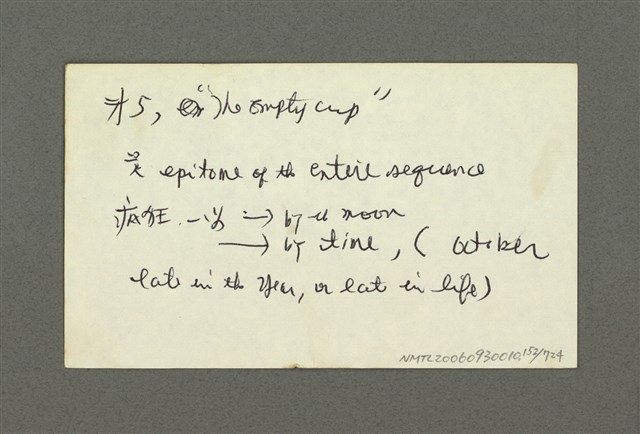 #5, "The empty cup"
is epitome of the entire sequence
瘋狂 → by the moon
→ by time, ( October
late in the year, or late in life)
NMTL20060930010,152/724